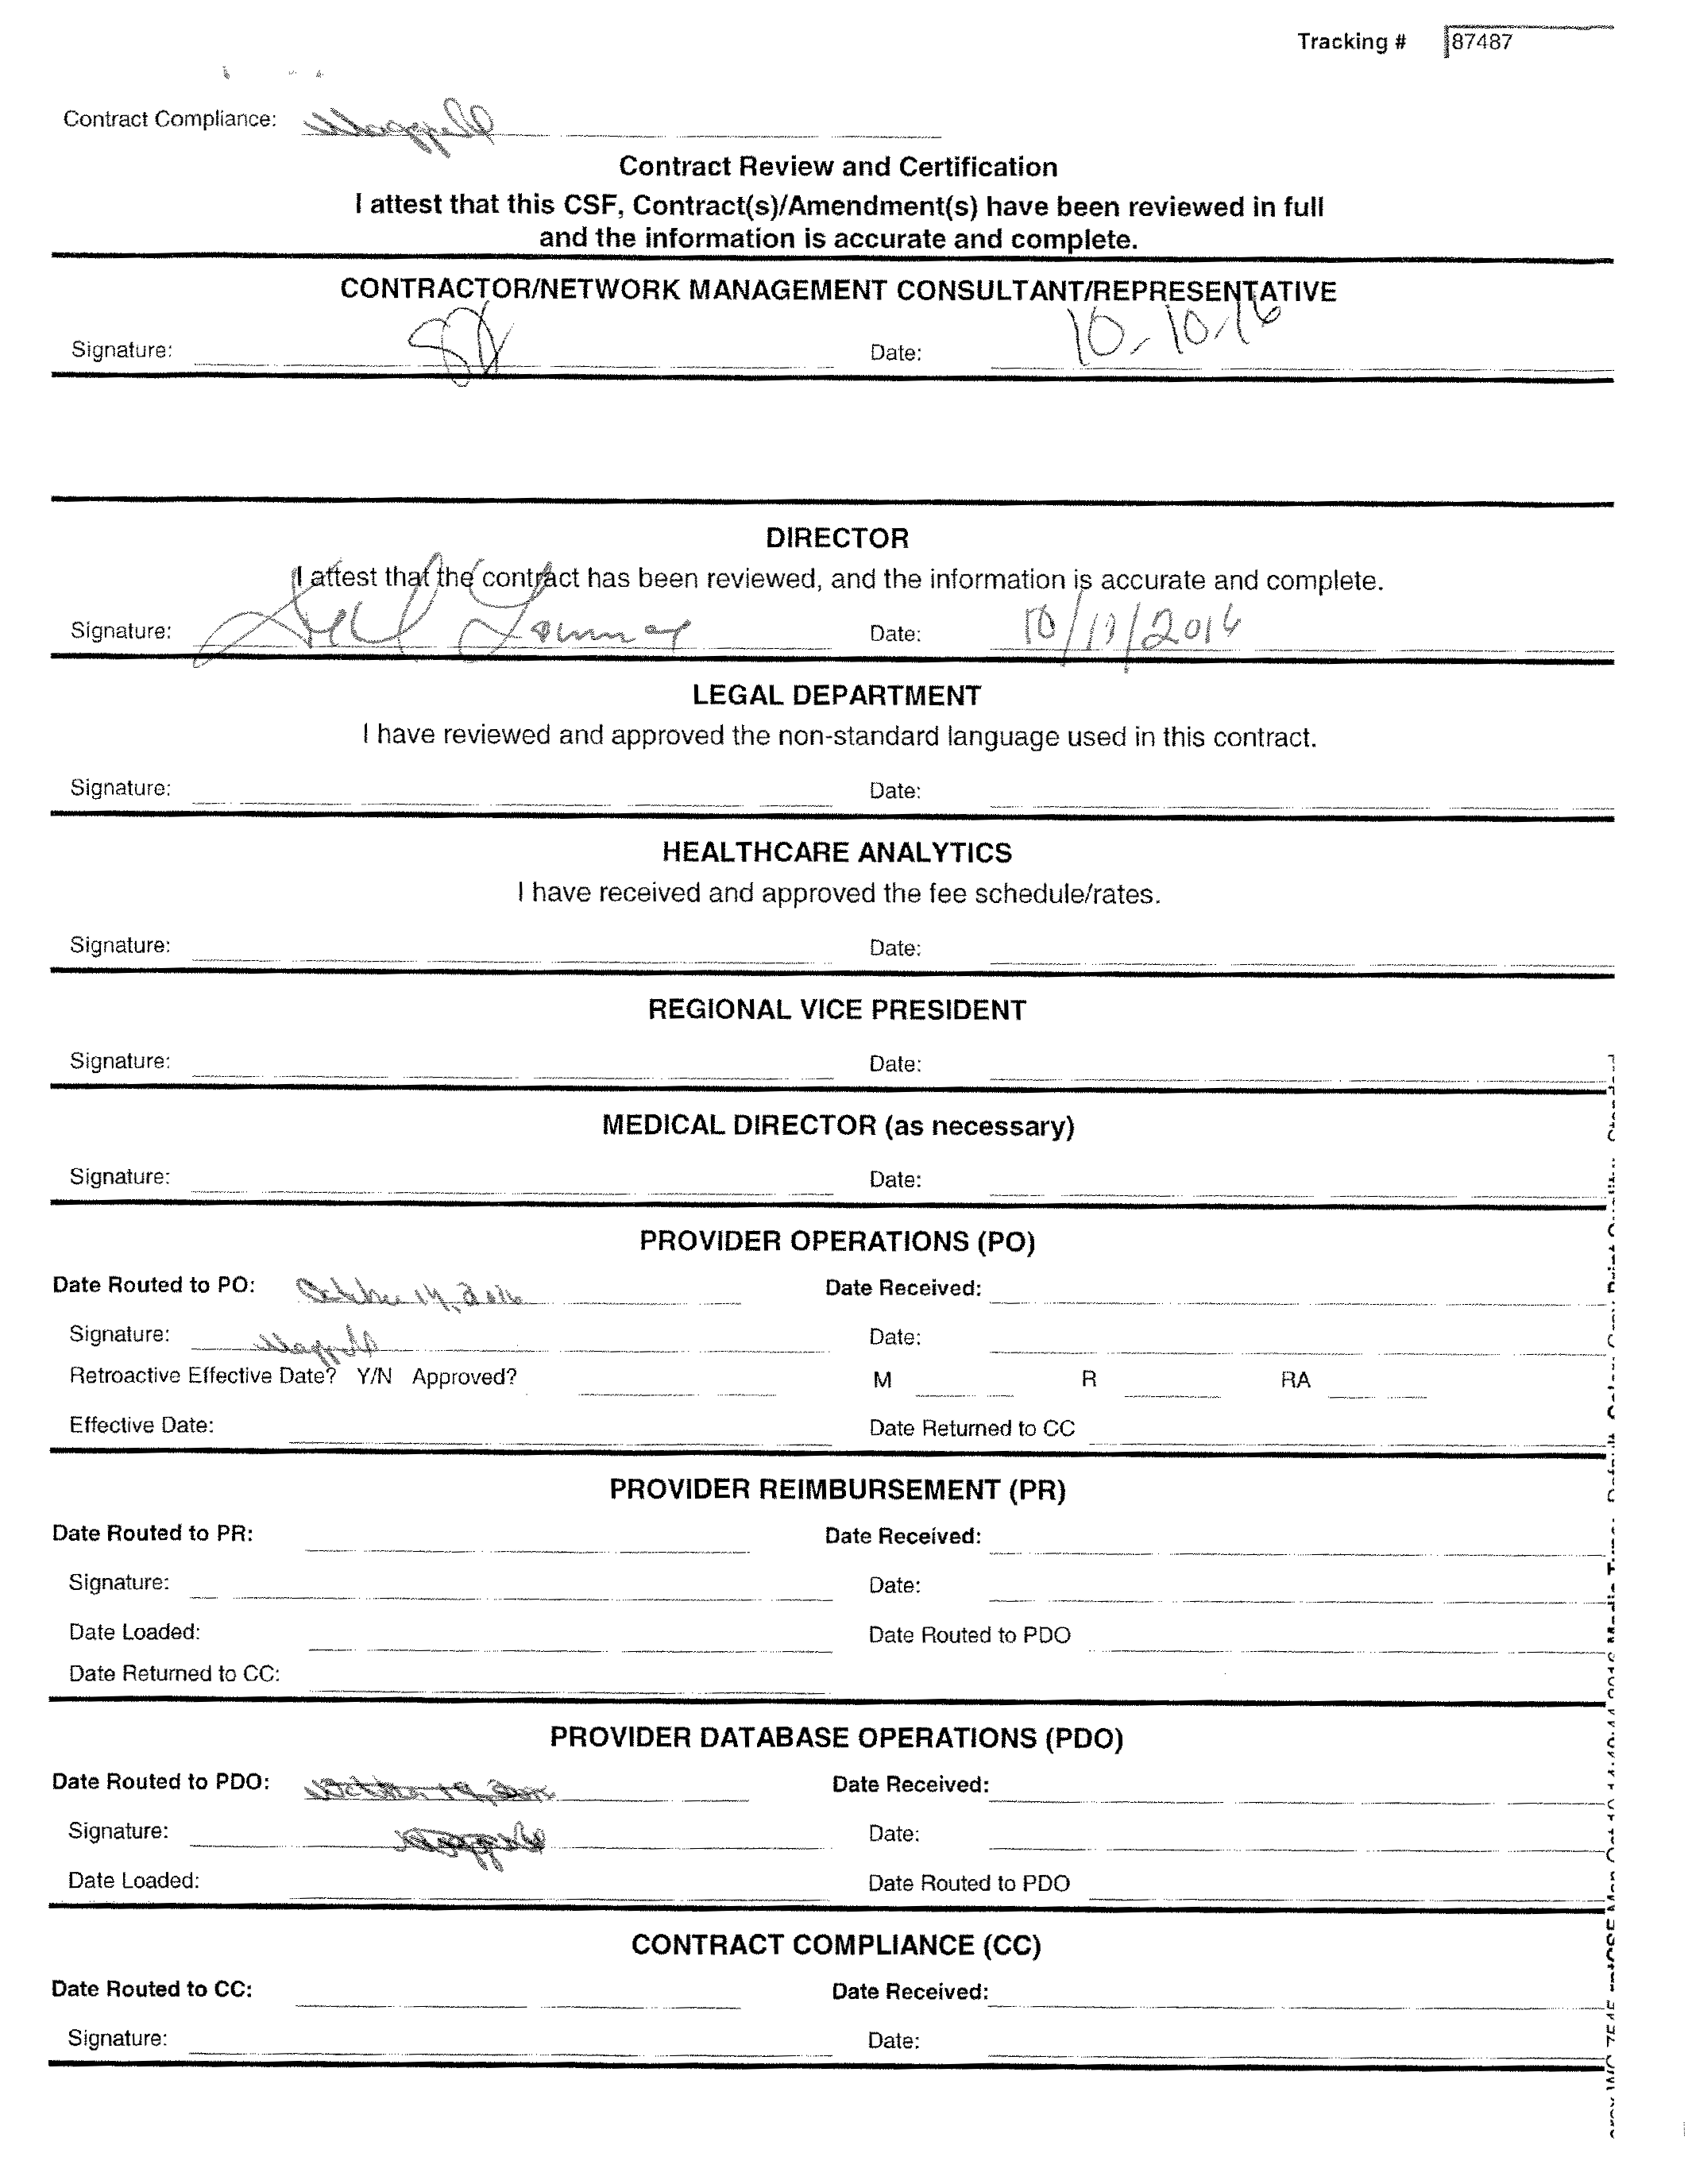 Tracking # 87487
Contract Compliance:
Contract Review and Certification
I attest that this CSF, Contract(s)/Amendment(s) have been reviewed in full
and the information is accurate and complete.
CONTRACTOR/NETWORK MANAGEMENT CONSULTANT/REPRESENTATIVE
Signature: Date: 10-10-16
DIRECTOR
I attest that the contract has been reviewed, and the information is accurate and complete.
Signature: Date:
LEGAL DEPARTMENT
I have reviewed and approved the non-standard language used in this contract.
Signature: Date:
HEALTHCARE ANALYTICS
I have received and approved the fee schedule/rates.
Signature: Date:
REGIONAL VICE PRESIDENT
Signature: Date:
MEDICAL DIRECTOR (as necessary)
Signature: Date:
PROVIDER OPERATIONS (PO)
Date Routed to PO: October 14, 2016 Date Received:
Signature: Date:
Retroactive Effective Date? Y/N Approved? M R RA
Effective Date: Date Returned to CC
PROVIDER REIMBURSEMENT (PR)
Date Routed to PR: Date Received:
Signature: Date:
Date Loaded: Date Routed to PDO
Date Returned to CC:
PROVIDER DATABASE OPERATIONS (PDO)
Date Routed to PDO: Date Received:
Signature: Date:
Date Loaded: Date Routed to PDO
CONTRACT COMPLIANCE (CC)
Date Routed to CC: Date Received:
Signature: Date: